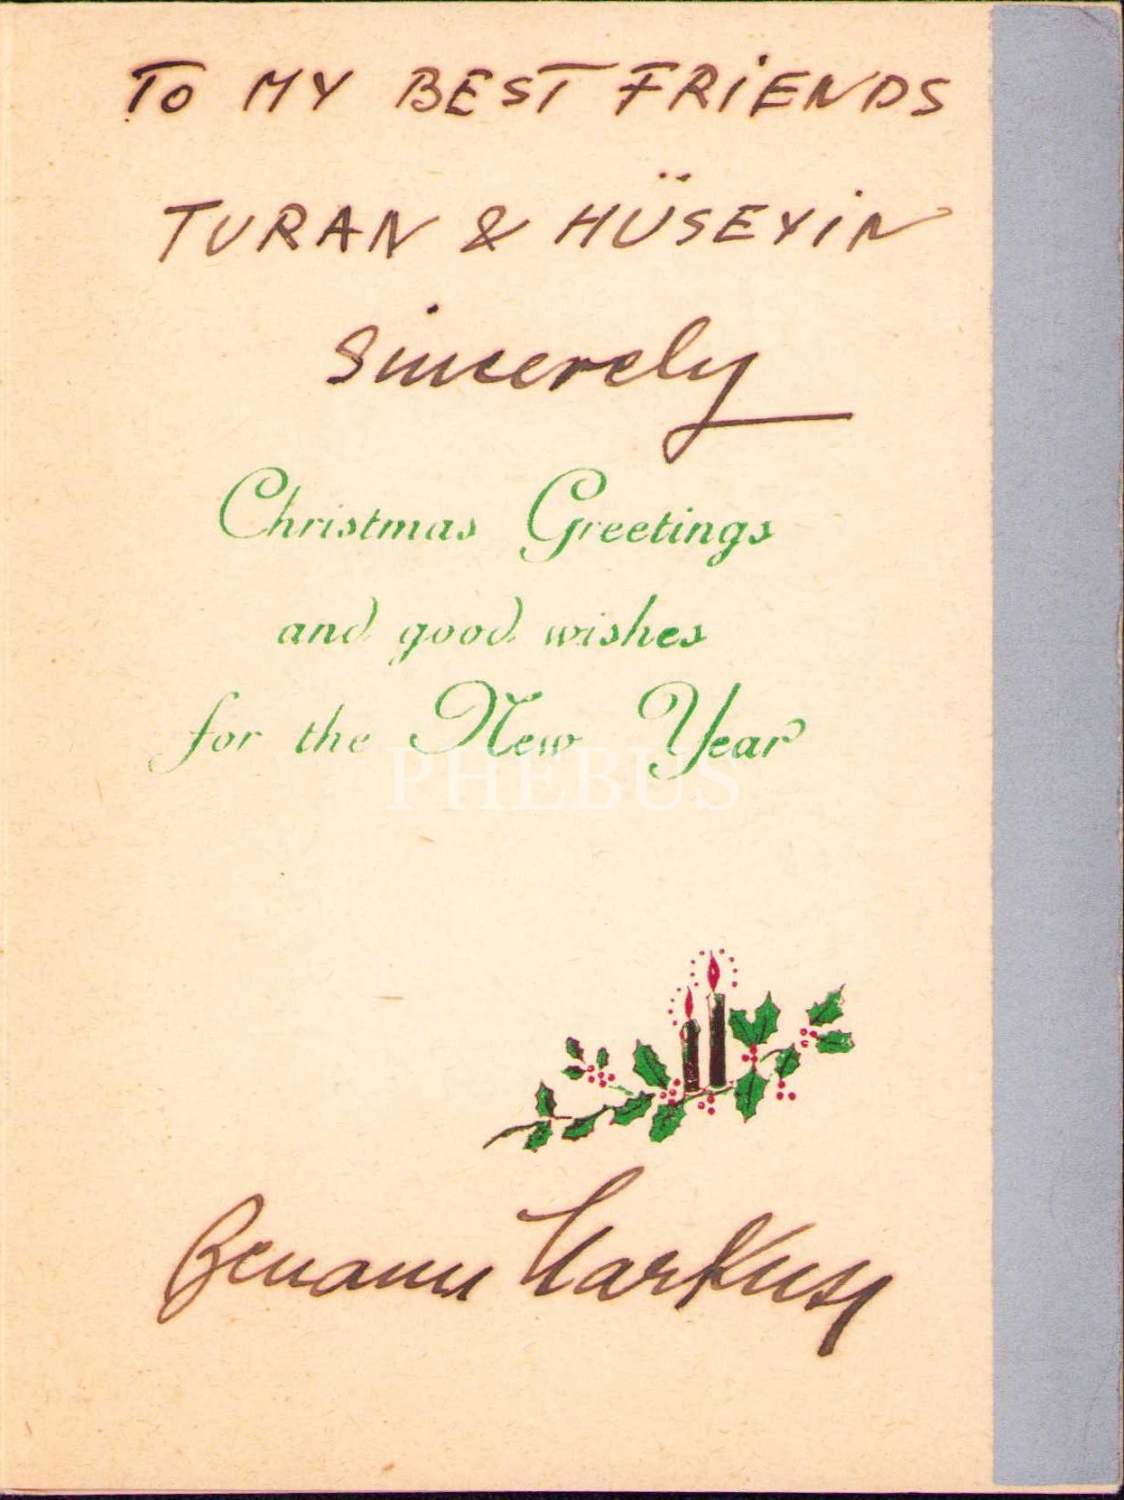 TO MY BEST FRIENDS
TURAN & HÜSEYİN
Sincerely
Christmas Greetings
and good wishes
for the New Year
PHEBUS